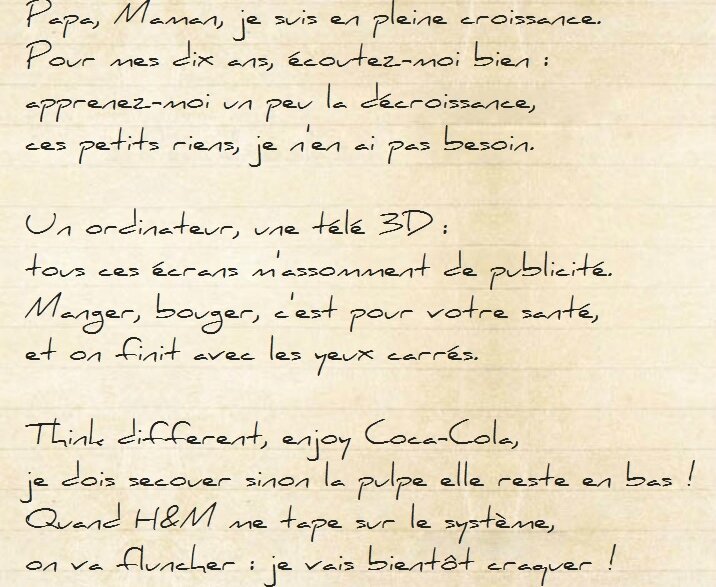 Papa, Maman, je suis en pleine croissance.
Pour mes dix ans, écoutez-moi bien :
apprenez-moi un peu la décroissance,
ces petits riens, je n'en ai pas besoin.
Un ordinateur, une télé 3D :
tous ces écrans m'assomment de publicité.
Manger, bouger, c'est pour votre santé,
et on finit avec les yeux carrés.
Think different, enjoy Coca-Cola,
je dois secouer sinon la pulpe elle reste en bas !
Quand H&M me tape sur le système,
on va fluncher : je vais bientôt craquer !